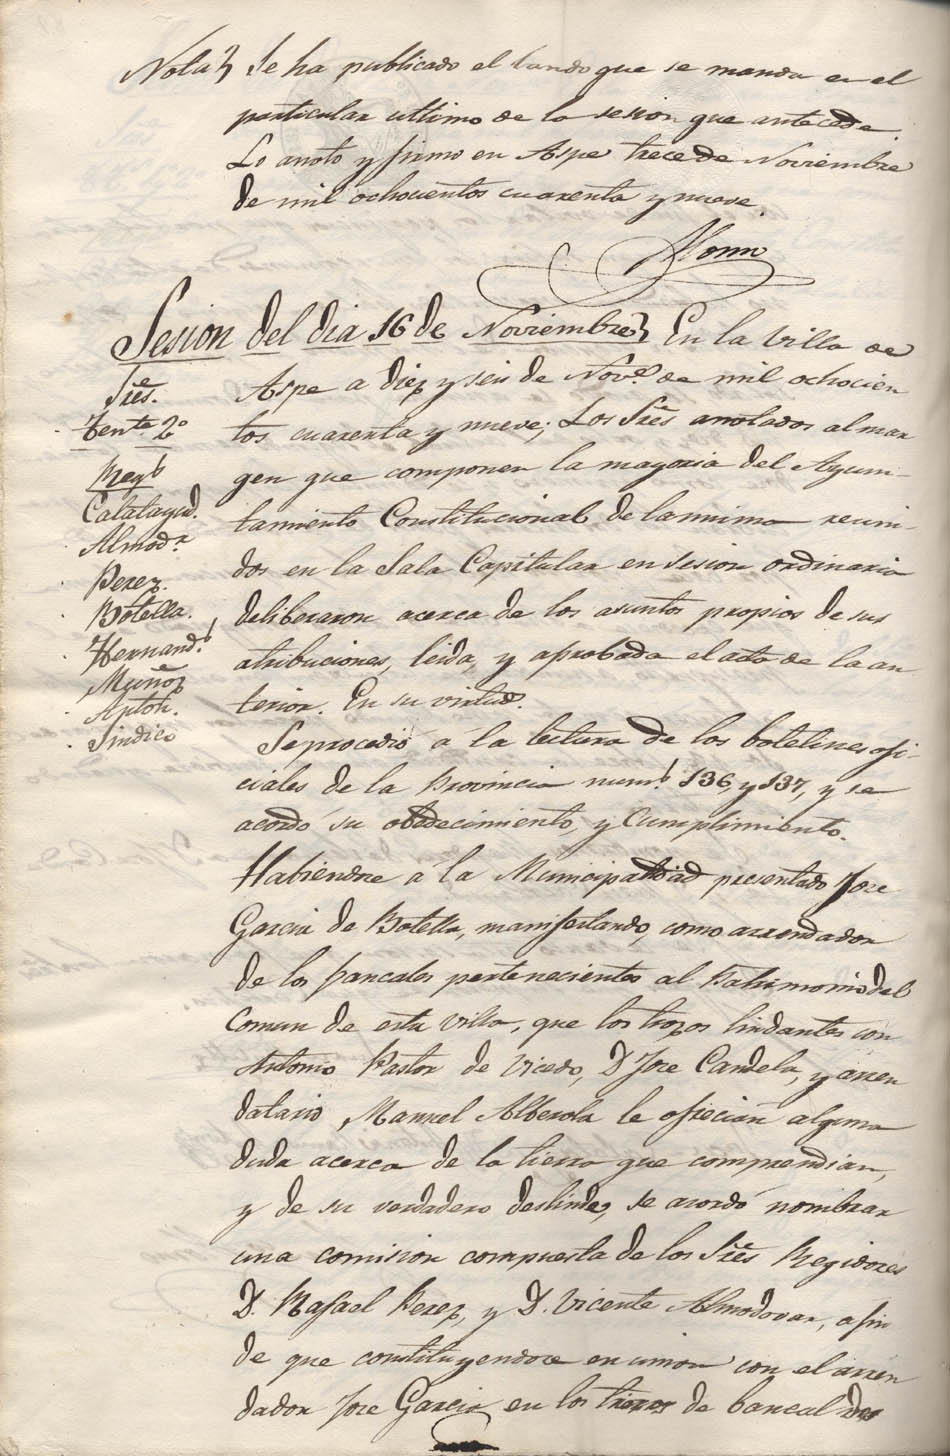 Nota } Se ha publicado el bando que se manda en el
particular ultimo de la sesion que antecede.
Lo anoto y firmo en Aspe trece de Noviembre
de mil ochocientos cuarenta y nueve.
Sesion del dia 16 de Noviembre } En la Villa de
Aspe a diez y seis de Nov.e de mil ochocien
tos cuarenta y nueve; Los Sres anotados al mar
gen que componen la mayoria del Ayun-
tamiento Constitucional de la misma reuni-
dos en la Sala Capitular en sesion ordinaria
deliberaron acerca de los asuntos propios de sus
atribuciones, leida, y aprobada el acta de la an
terior. En su virtud.
Sres.
Tente. 2o
Regs
Calatayud.
Almodr
Perez.
Botella.
Hernands
Muñoz
Anton.
Sindico
Se procedió á la lectura de los boletines ofi-
ciales de la Provincia nums. 136, y 137, y se
acordó su obedecimiento, y cumplimiento.
Habiendose á la Municipalidad presentado Jose
Garcia de Botella, manifestando, como arrendador
de los bancales pertenecientes al Patrimonio del
Comun de esta villa, que los trozos lindantes con
Antonio Pastor de Vicedo, D. Jose Candela, y arren
datario Manuel Alberola le ofrecian alguna
duda acerca de la tierra que comprendian,
y de su verdadero deslinde, se acordó nombrar
una comision compuesta de los Sres Regidores
D. Rafael Perez, y D. Vicente Almodovar, a fin
de que constituyendose en union con el arren
dador Jose Garcia en los trozos de bancal